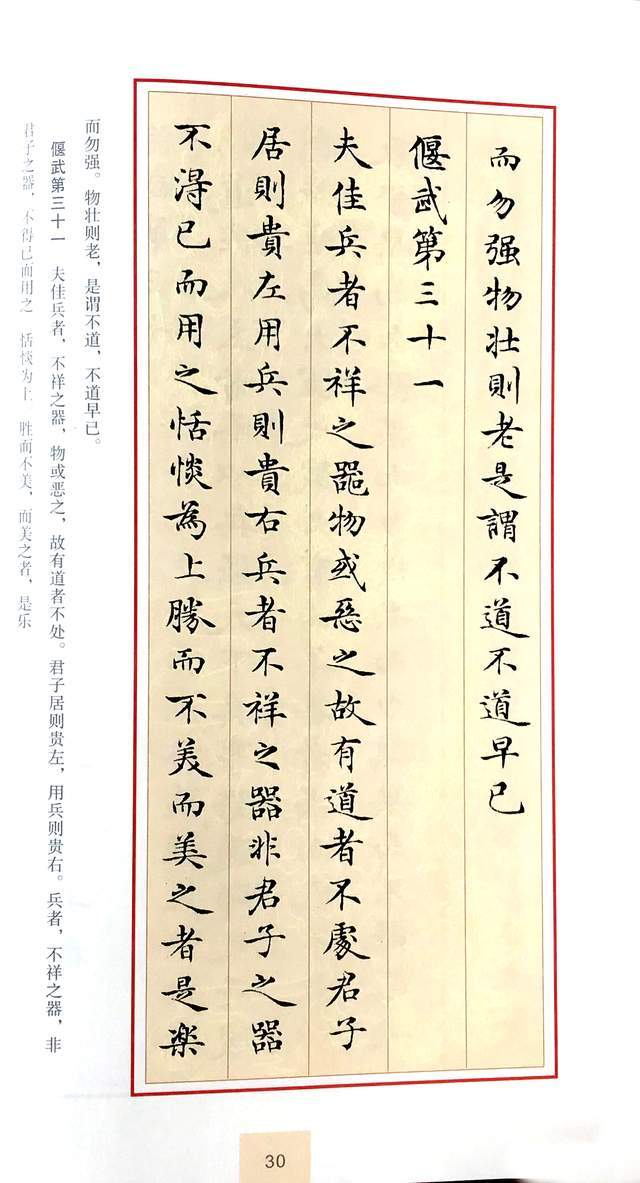 而勿强物壮則老是謂不道不道早已
偃武第三十一
夫佳兵者不祥之器物或惡之故有道者不處君子
居則貴左用兵則貴右兵者不祥之器非君子之器
不得已而用之恬惔為上勝而不美而美之者是樂
而勿强。物壮则老，是谓不道，不道早已。
偃武第三十一　夫佳兵者，不祥之器，物或恶之，故有道者不处。君子居则贵左，用兵则贵右。兵者，不祥之器，非
君子之器，不得已而用之　恬惔为上　胜而不美，而美之者，是乐
30